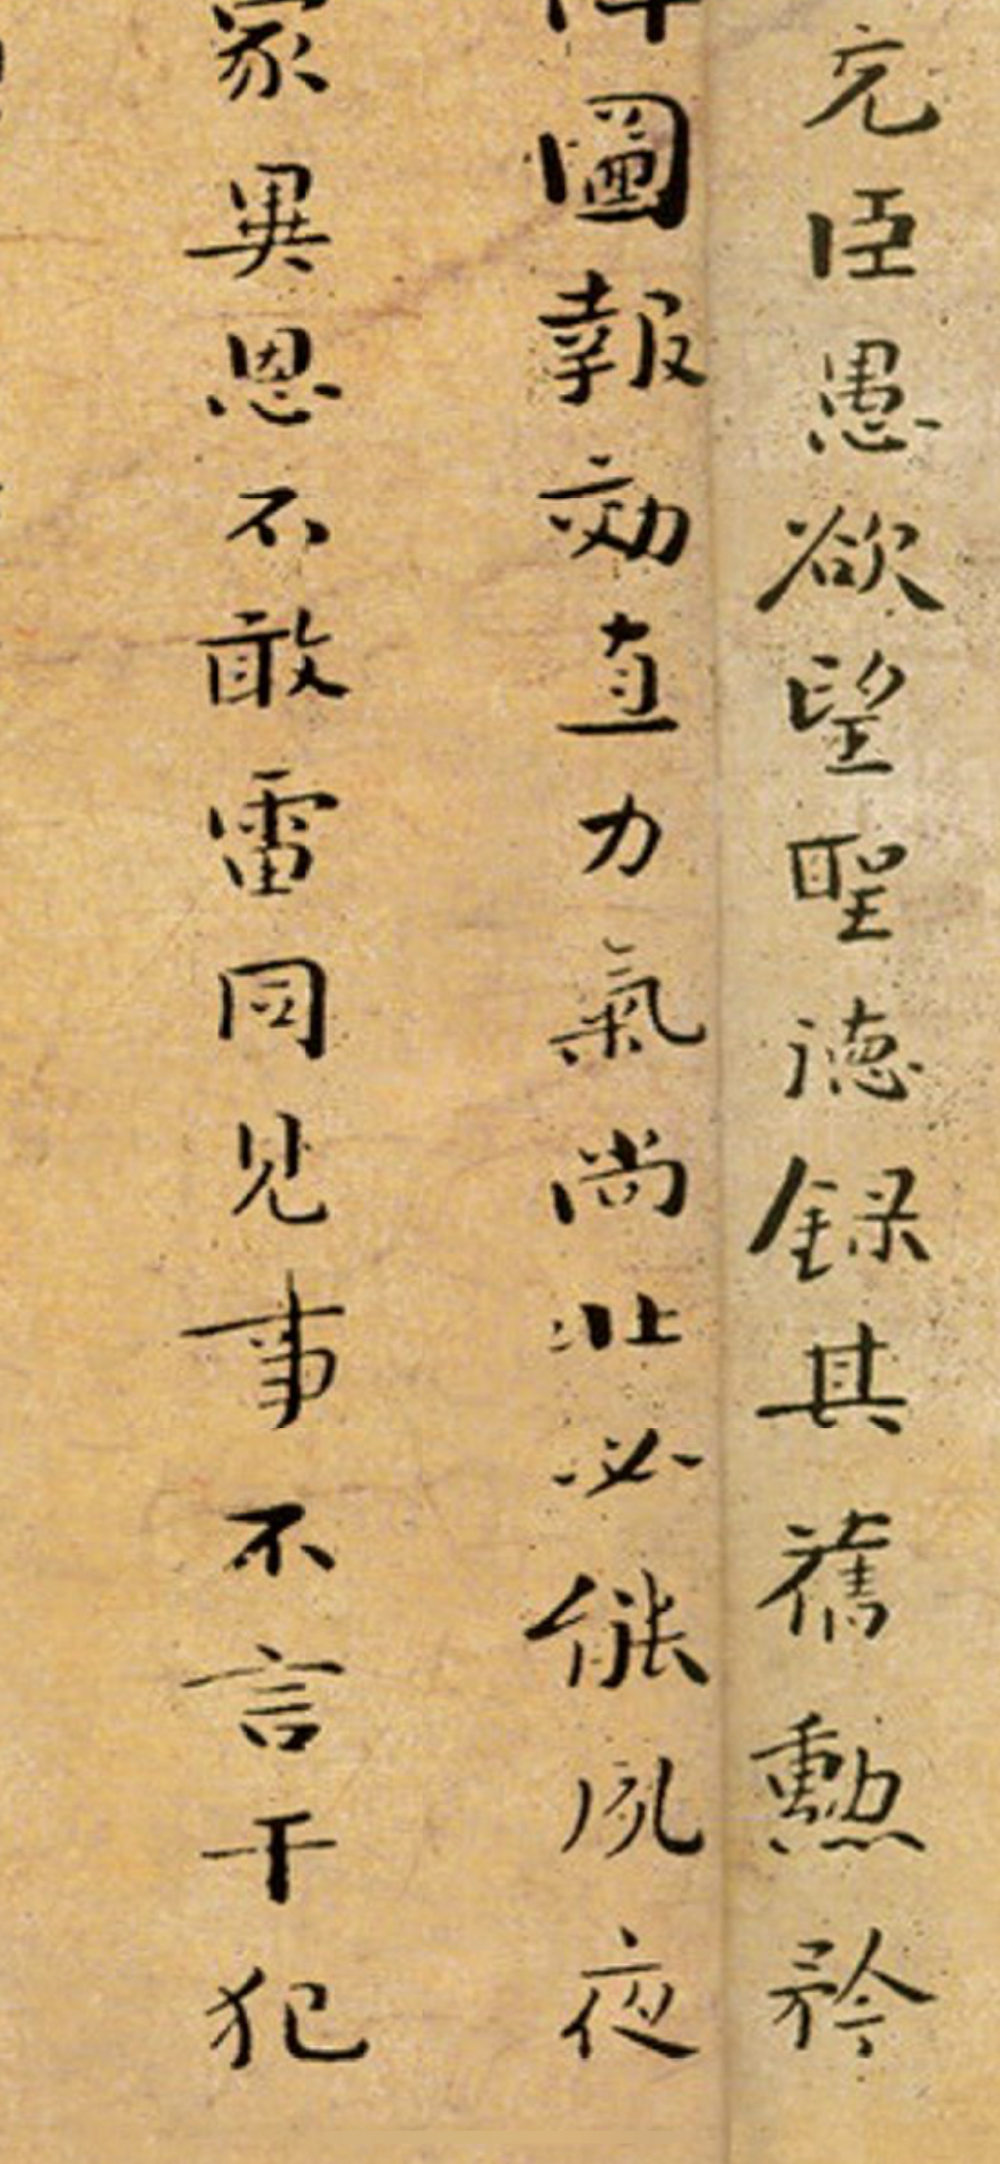 充臣愚欲望聖德録其舊勳矜
圖報効直力氣尚壯必能夙夜
家異恩不敢雷同見事不言干犯